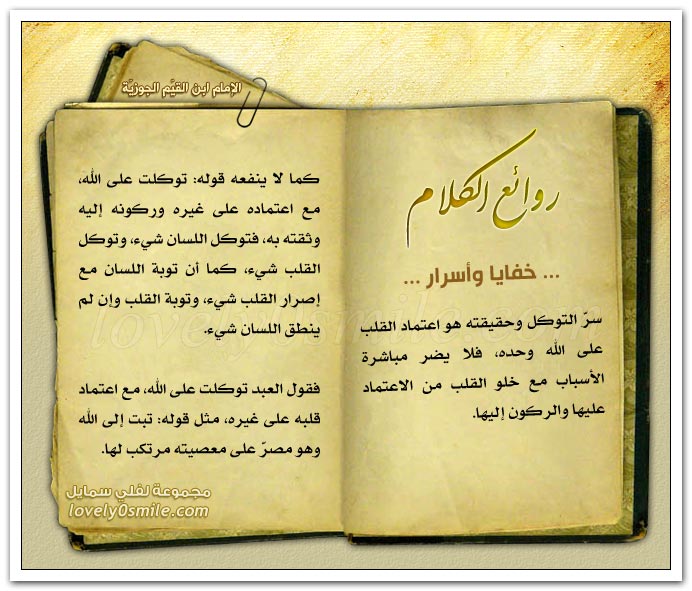 الإمام ابن القيَّم الجوزيَّة
روائع الكلام
... خفايا وأسرار ...
سرّ التوكل وحقيقته هو اعتماد القلب
على الله وحده، فلا يضر مباشرة
الأسباب مع خلو القلب من الاعتماد
عليها والركون إليها.
كما لا ينفعه قوله: توكلت على الله،
مع اعتماده على غيره وركونه إليه
وثقته به، فتوكل اللسان شيء، وتوكل
القلب شيء، كما أن توبة اللسان مع
إصرار القلب شيء، وتوبة القلب وإن لم
ينطق اللسان شيء.
فقول العبد توكلت على الله، مع اعتماد
قلبه على غيره، مثل قوله: تبت إلى الله
وهو مصرّ على معصيته مرتكب لها.
مجموعة لفلي سمايل
lovely0smile.com
lovely0smile.com